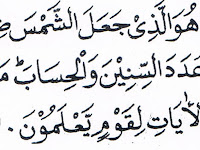 هُوَ الَّذِیْ جَعَلَ الشَّمْسَ
عَدَدَ السِّنِیْنَ وَالْحِسَابَ ؕ
الْاٰیَاتِ لِقَوْمٍ یَّعْلَمُوْنَ